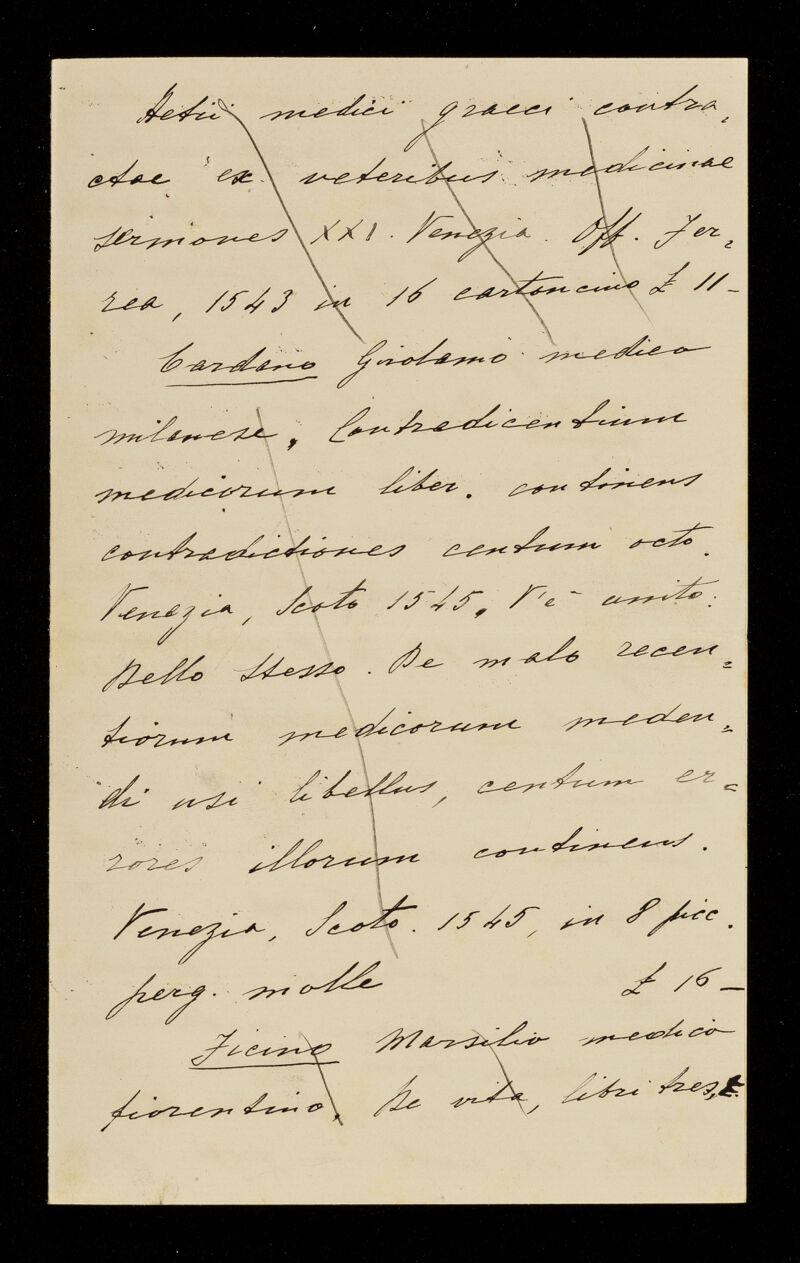 Aetii medici graeci contra,
ctae ex veteribus medicinae
sermones XXI. Venezia. Off. Fer=
rea, 1543 in 16 cartoncino £ 11 -
Cardano Girolamo medico
milanese, Contradicentium
medicorum liber. continens
contradictiones centum octo.
Venezia, Scoto 1545, V'è unito:
Dello Stesso. De malo recen=
tiorum medicorum meden=
di usi libellus, centum er=
rores illorum continens.
Venezia, Scoto. 1545, in 8 picc.
perg. molle £ 16 -
Ficino Marsilio medico
fiorentino, De vita, libri tres,